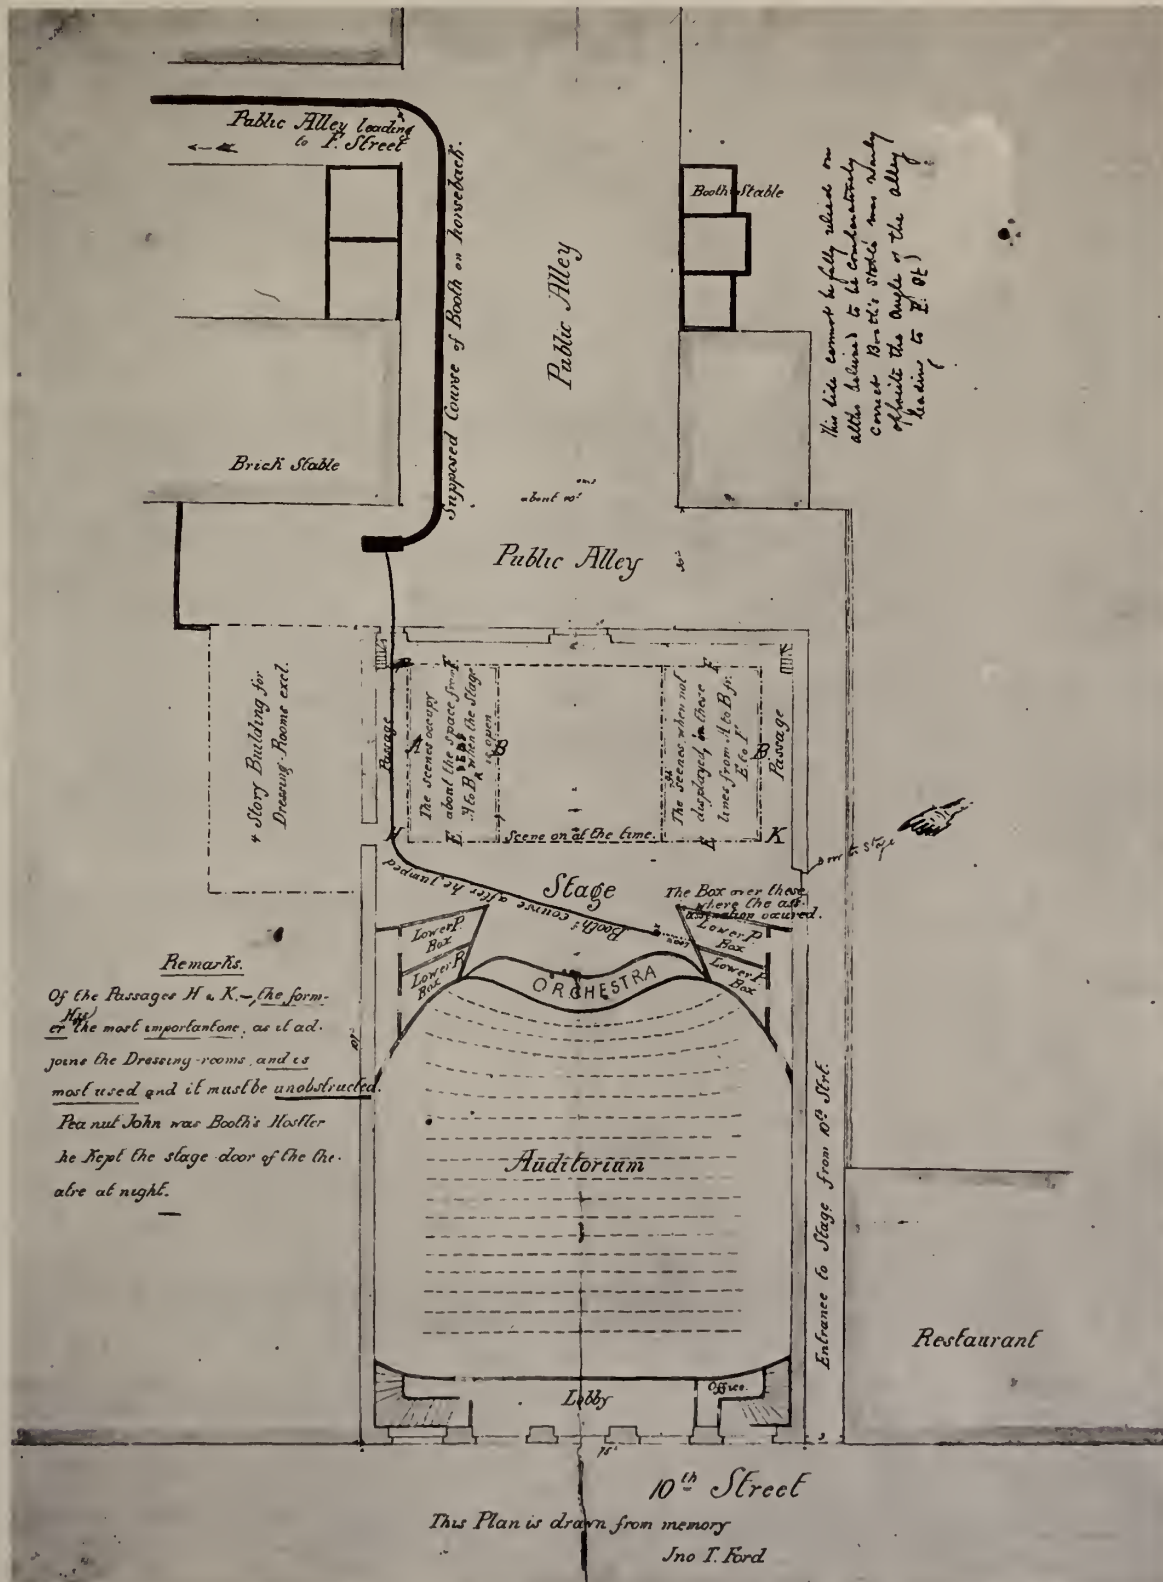 Public Alley leading
to F. Street
Supposed Course of Booth on horseback.
Public Alley
Booth Stable
This side cannot be fully relied on
altho believed to be comparatively
correct Booth's stable was nearly
opposite the angle of the alley
leading to F. St)
Brick Stable
about 20'
Public Alley
30'
4 Story Building for
Dressing-Rooms excl.
Passage
The scenes occupy
about the space from
A to B, when the Stage
is open
F
A
B
E
H
Scene on at the time.
The scenes when not
displayed, in these
lines from A to B fr.
E to F
F
B
E
K
Passage
Door to stage
Stage
Booth's course after he jumped
The Box over these
where the ass-
assination occured.
Lower P.
Box
Lower P.
Box
Lower P.
Box
Lower P.
Box
ORCHESTRA
Remarks.
Of the Passages H & K.-, the form-
er (H) the most important one, as it ad-
joins the Dressing-rooms, and is
most used and it must be unobstructed.
Peanut John was Booth's Hostler
he Kept the stage-door of the the-
atre at night.
Auditorium
Entrance to Stage from 10th Strt.
Restaurant
Lobby
Office.
75'
10th Street
This Plan is drawn from memory
Jno T. Ford